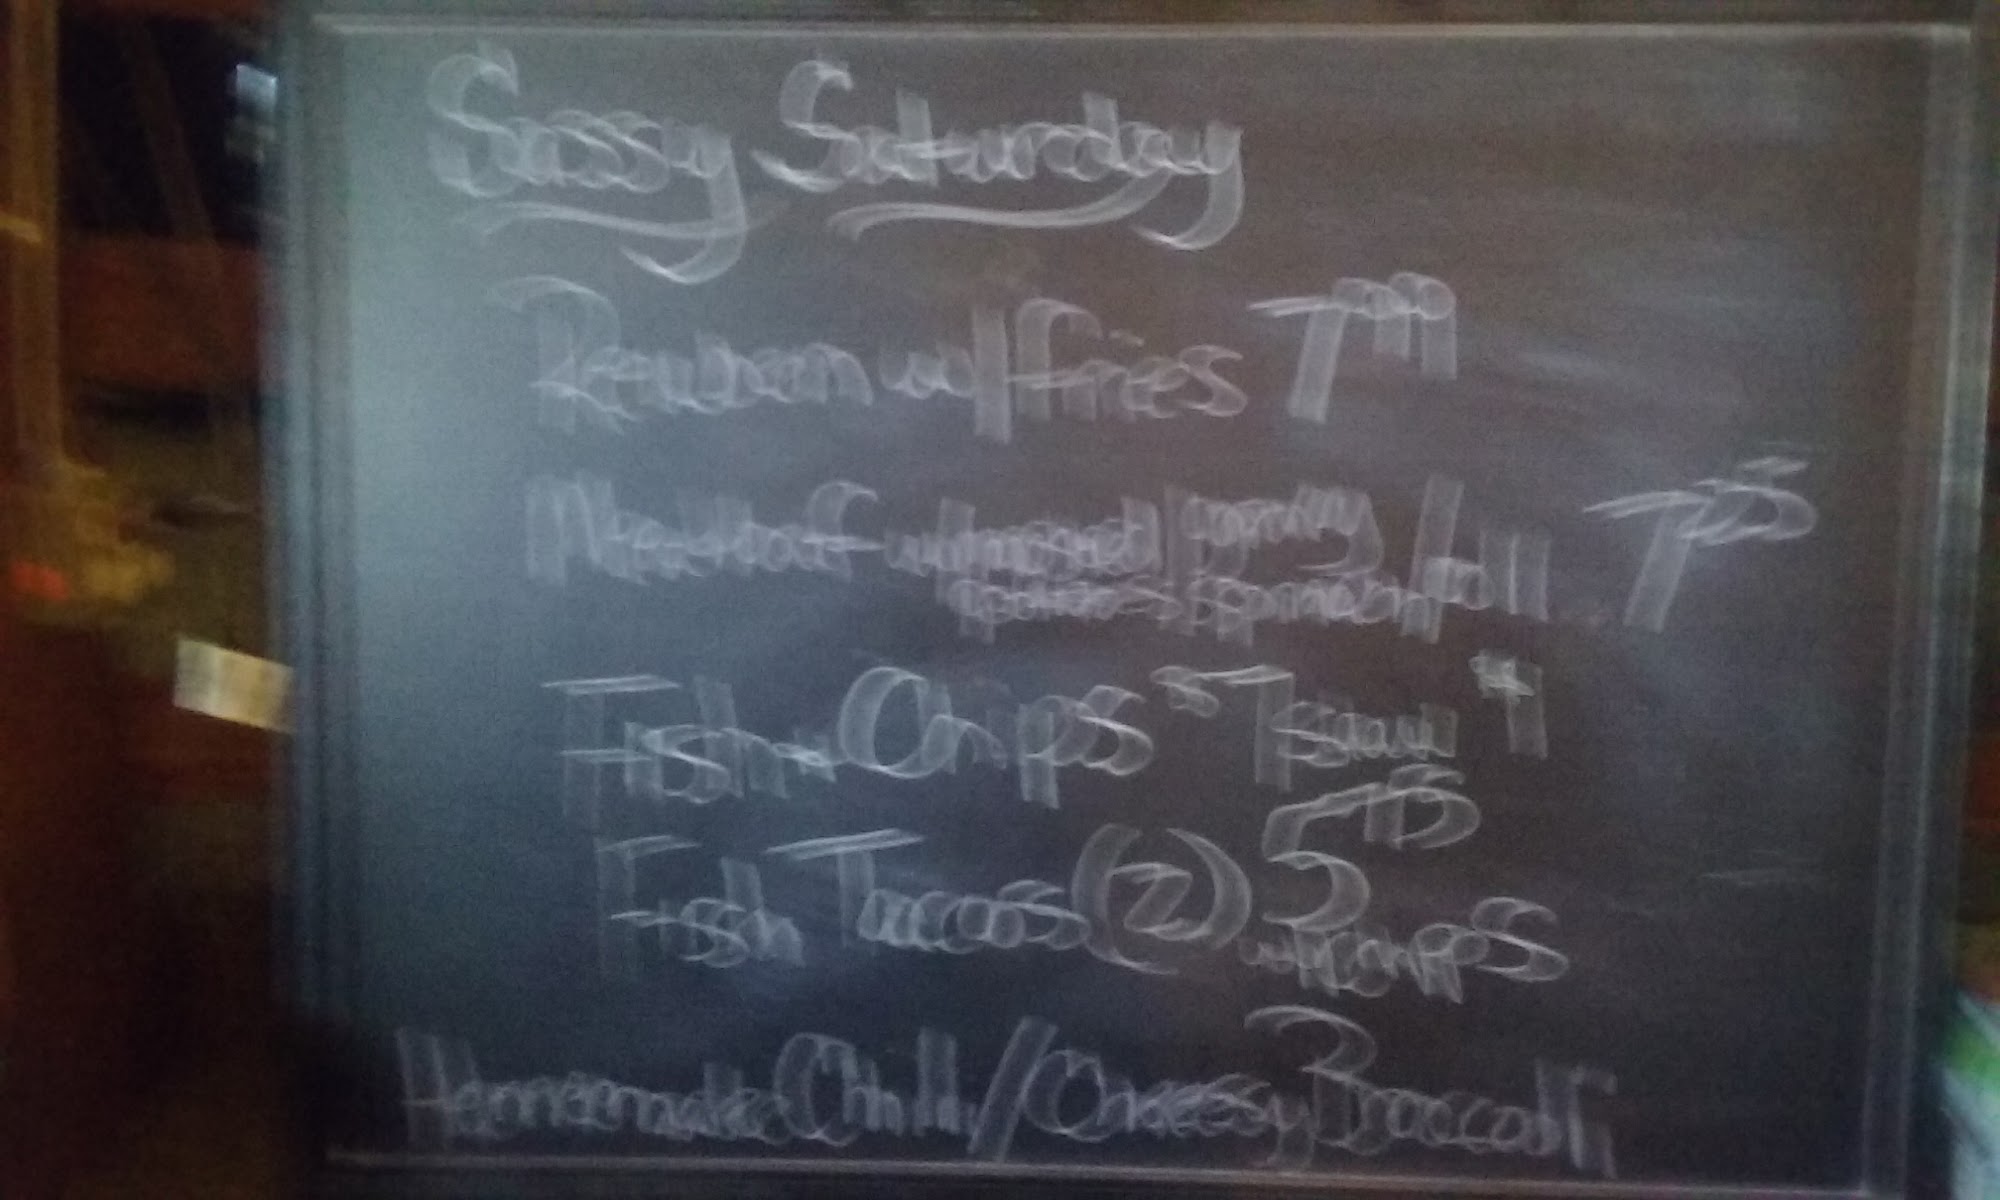 Sassy Saturday
Reuben w/ fries 7⁹⁹
Meatloaf w/ mashed potatoes / gravy spinach / roll 7²⁵
Fish n Chips "slaw"
Fish Tacos (2) 5⁷⁵ w/ chips
Homemade Chili / Cheesy Broccoli